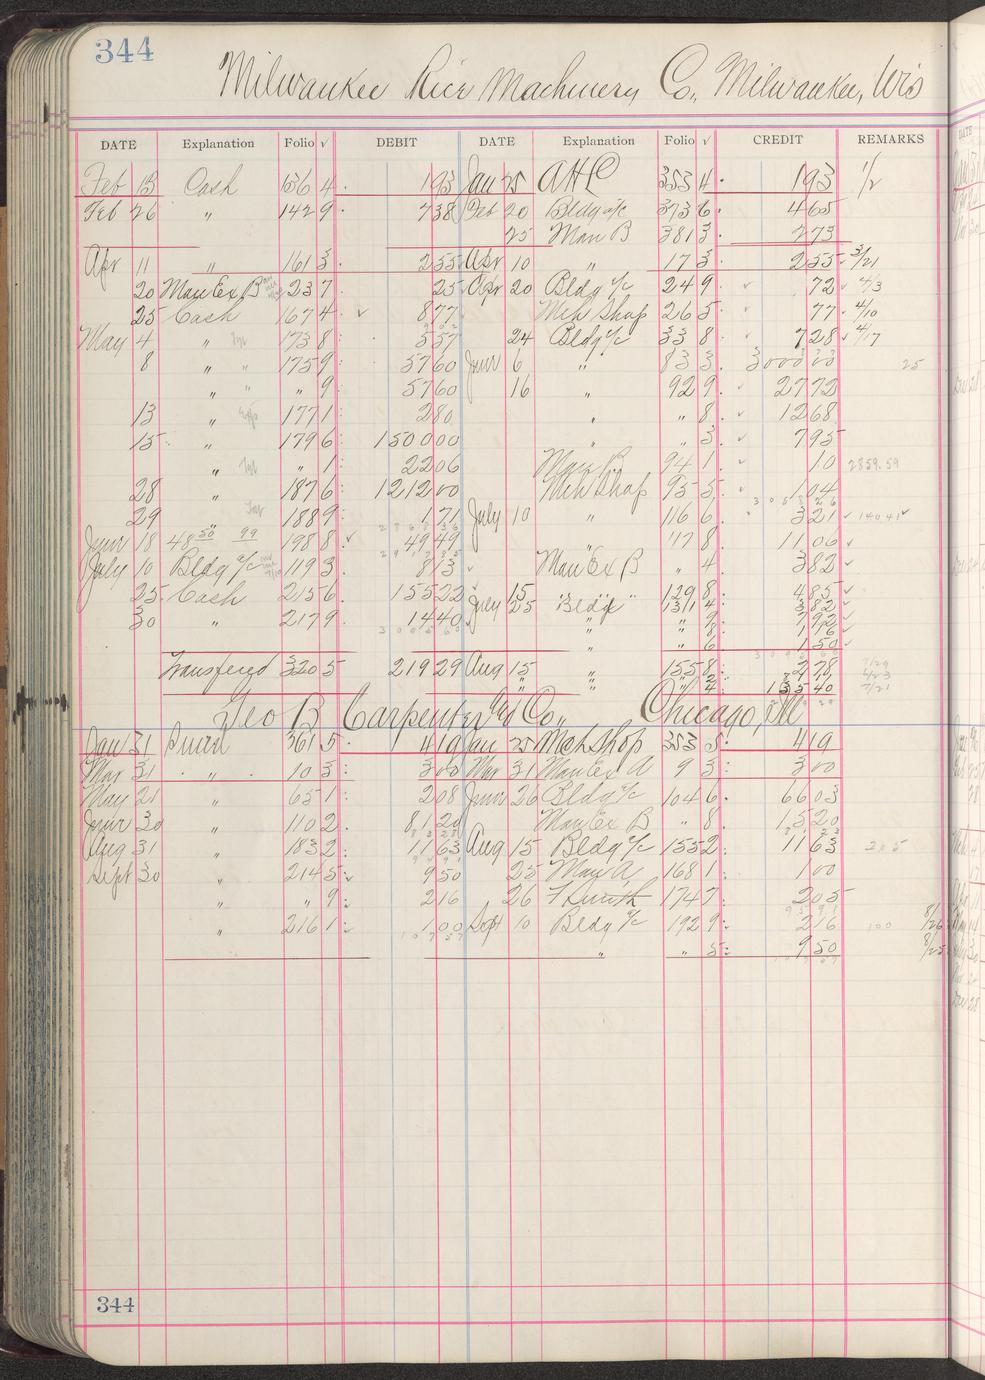 344
Milwaukee Rice Machinery Co., Milwaukee, Wis
DATE Explanation Folio √ DEBIT DATE Explanation Folio √ CREDIT REMARKS
Feb 13 Cash 136 4 193 Jan 25 353 4 193 1/2
Feb 26 " 142 9 738 Feb 20 Bldg a/c 373 6 465
25 Man B 381 3 273
Apr 11 " 161 3 255 Apr 10 " 17 3 255 3/21
20 Man Ex B 23 7 25 Apr 20 Bldg a/c 24 9 72 4/3
25 Cash 167 4 877 Mch Shop 26 5 77 4/10
May 4 " 173 8 557 24 Bldg a/c 33 8 728 4/17
8 " " 175 9 5760 June 6 " 83 3 3000 00 25
" " 9 5760 16 " 92 9 2772
13 " 177 1 280 " " 8 1268
15 " 179 6 150000 " " 3 795
" " 1 2206 Man B 94 1 10 2859.59
28 " 187 6 121200 Mch Shop 95 5 104
29 " 188 9 171 July 10 " 116 6 321 14041
June 18 48 50 99 198 8 4949 " 117 8 1106
July 10 Bldg a/c 119 3 813 Man Ex B " 4 382
25 Cash 215 6 15522 15 129 8 485
30 " 217 9 1440 July 25 Bldg a/c 131 4 382
" " 9 792
" " 8
" " 6 150
Transfered 320 5 21929 Aug 15 " 155 8 278 7/29
" " " 4 13540 7/21
Geo B Carpenter & Co., Chicago, Ill
Jan 31 361 5 419 Jan 25 Mch Shop 353 5 419
Mar 31 " 10 3 300 Mar 31 Man Ex A 9 3 300
May 21 " 65 1 208 June 26 Bldg a/c 104 6 6603
June 30 " 110 2 8120 Man Ex B " 8 1520
Aug 31 " 183 2 1163 Aug 15 Bldg a/c 155 2 1163 205
Sept 30 " 214 5 950 25 Man A 168 1 100
" " 9 216 26 174 7 205
" 216 1 100 Sept 10 Bldg a/c 192 9 216 100 8/26
" " 5 950 8/25
344